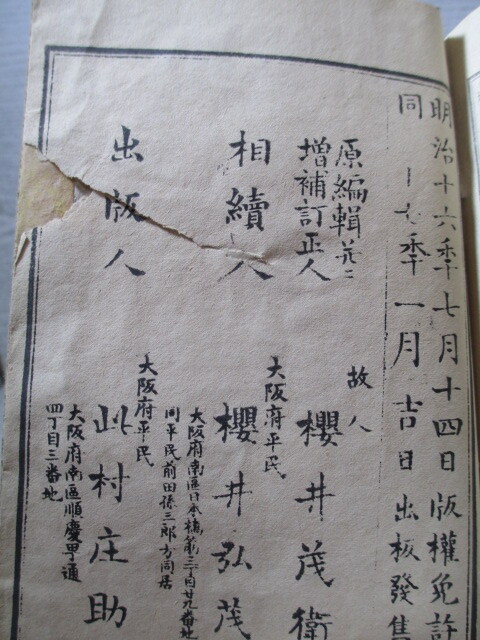 明治十六季七月十四日版權免許
同十七季一月吉日出板發
原編輯并ニ
増補訂正人
故人
櫻井茂衛
相續人
大阪府平民
櫻井弘茂
大阪府南區日本橋第三丁目廿九番地
同平民前田孫三郎方同居
出版人
大阪府平民
此村庄助
大阪府南區順慶甼通
四丁目三番地